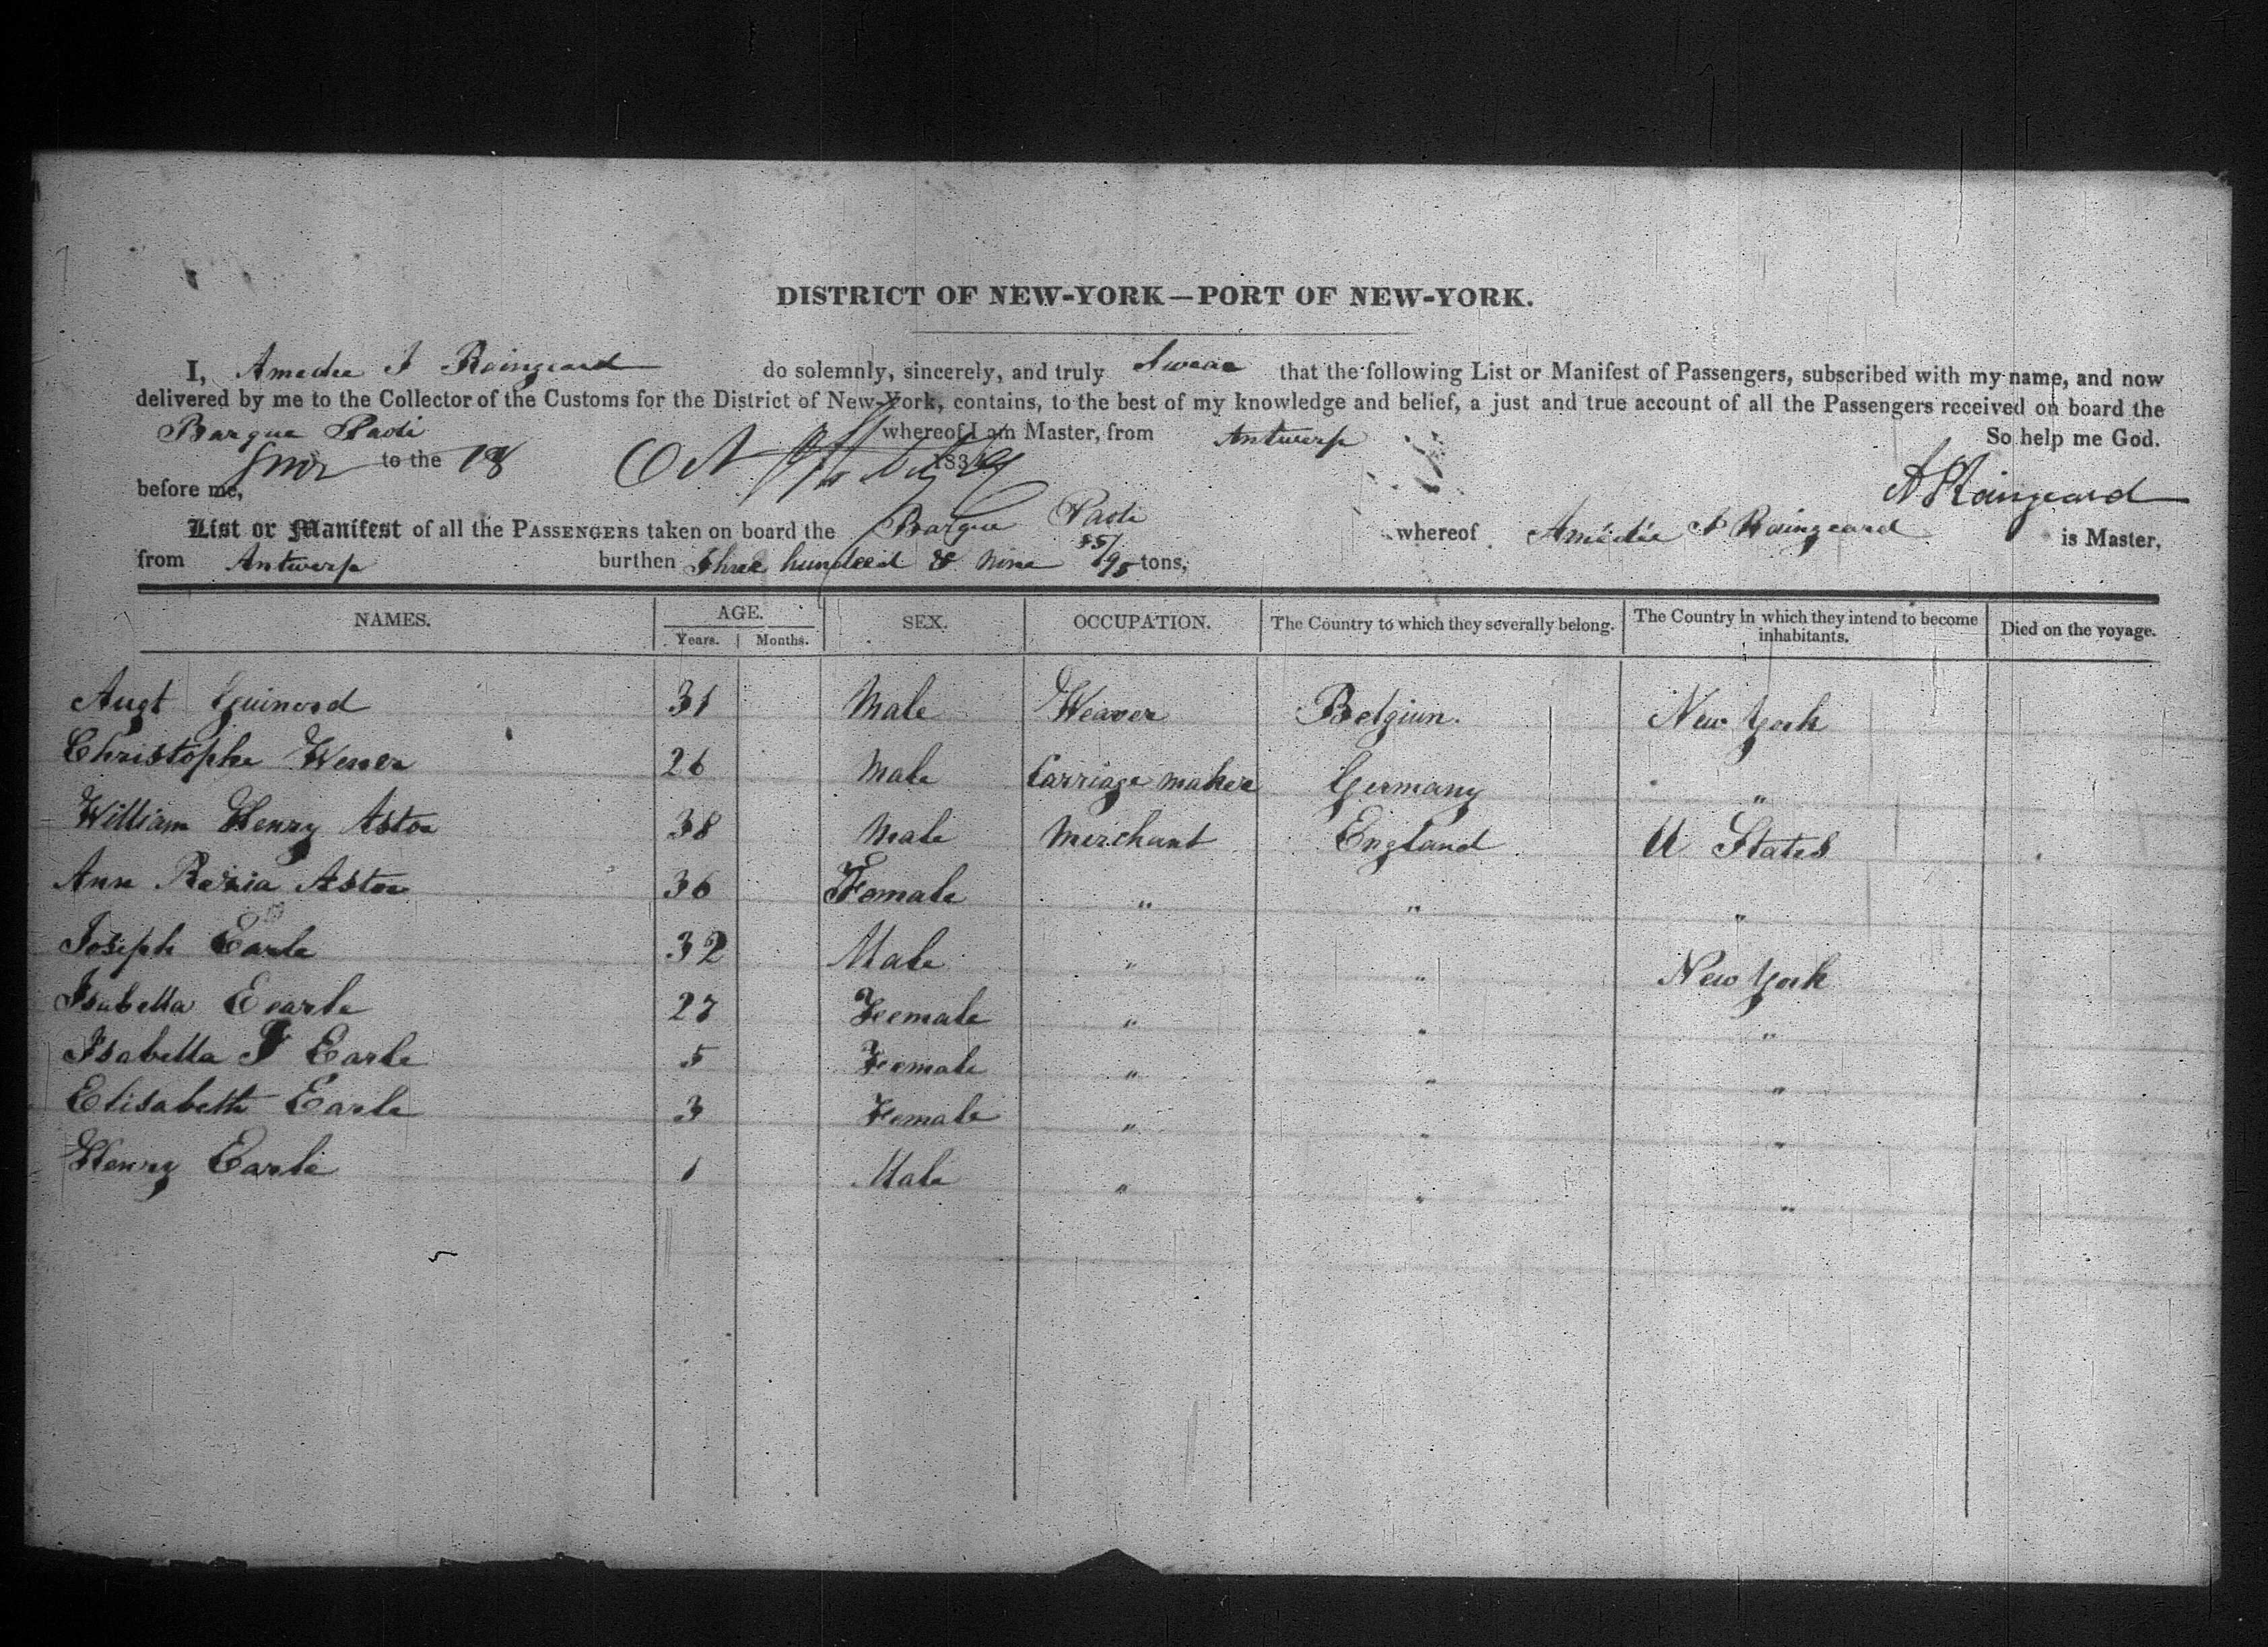 DISTRICT OF NEW-YORK—PORT OF NEW-YORK.
I, Amedee I Raingeard do solemnly, sincerely, and truly Swear that the following List or Manifest of Passengers, subscribed with my name, and now
delivered by me to the Collector of the Customs for the District of New-York, contains, to the best of my knowledge and belief, a just and true account of all the Passengers received on board the
Barque Paoli whereof I am Master, from Antwerp So help me God.
to the 18 Oct 183
before me, A Raingeard
List or Manifest of all the PASSENGERS taken on board the Barque Paoli whereof Amédée I Raingeard is Master,
from Antwerp burthen Three hundred & nine 85/95 tons,
NAMES. AGE. SEX. OCCUPATION. The Country to which they severally belong. The Country in which they intend to become inhabitants. Died on the voyage.
Years. Months.
Augt Guinord 31 Male Weaver Belgium. New York
Christophe Wener 26 Male Carriage maker Germany "
William Henry Astor 38 Male Merchant England U States
Ann Astor 36 Female " " "
Joseph Earle 32 Male " " New York
Isabella Eearle 27 Feemale " " "
Isabella F Earle 5 Female " " "
Elisabeth Earle 3 Female " " "
Henry Earle 1 Male " " "